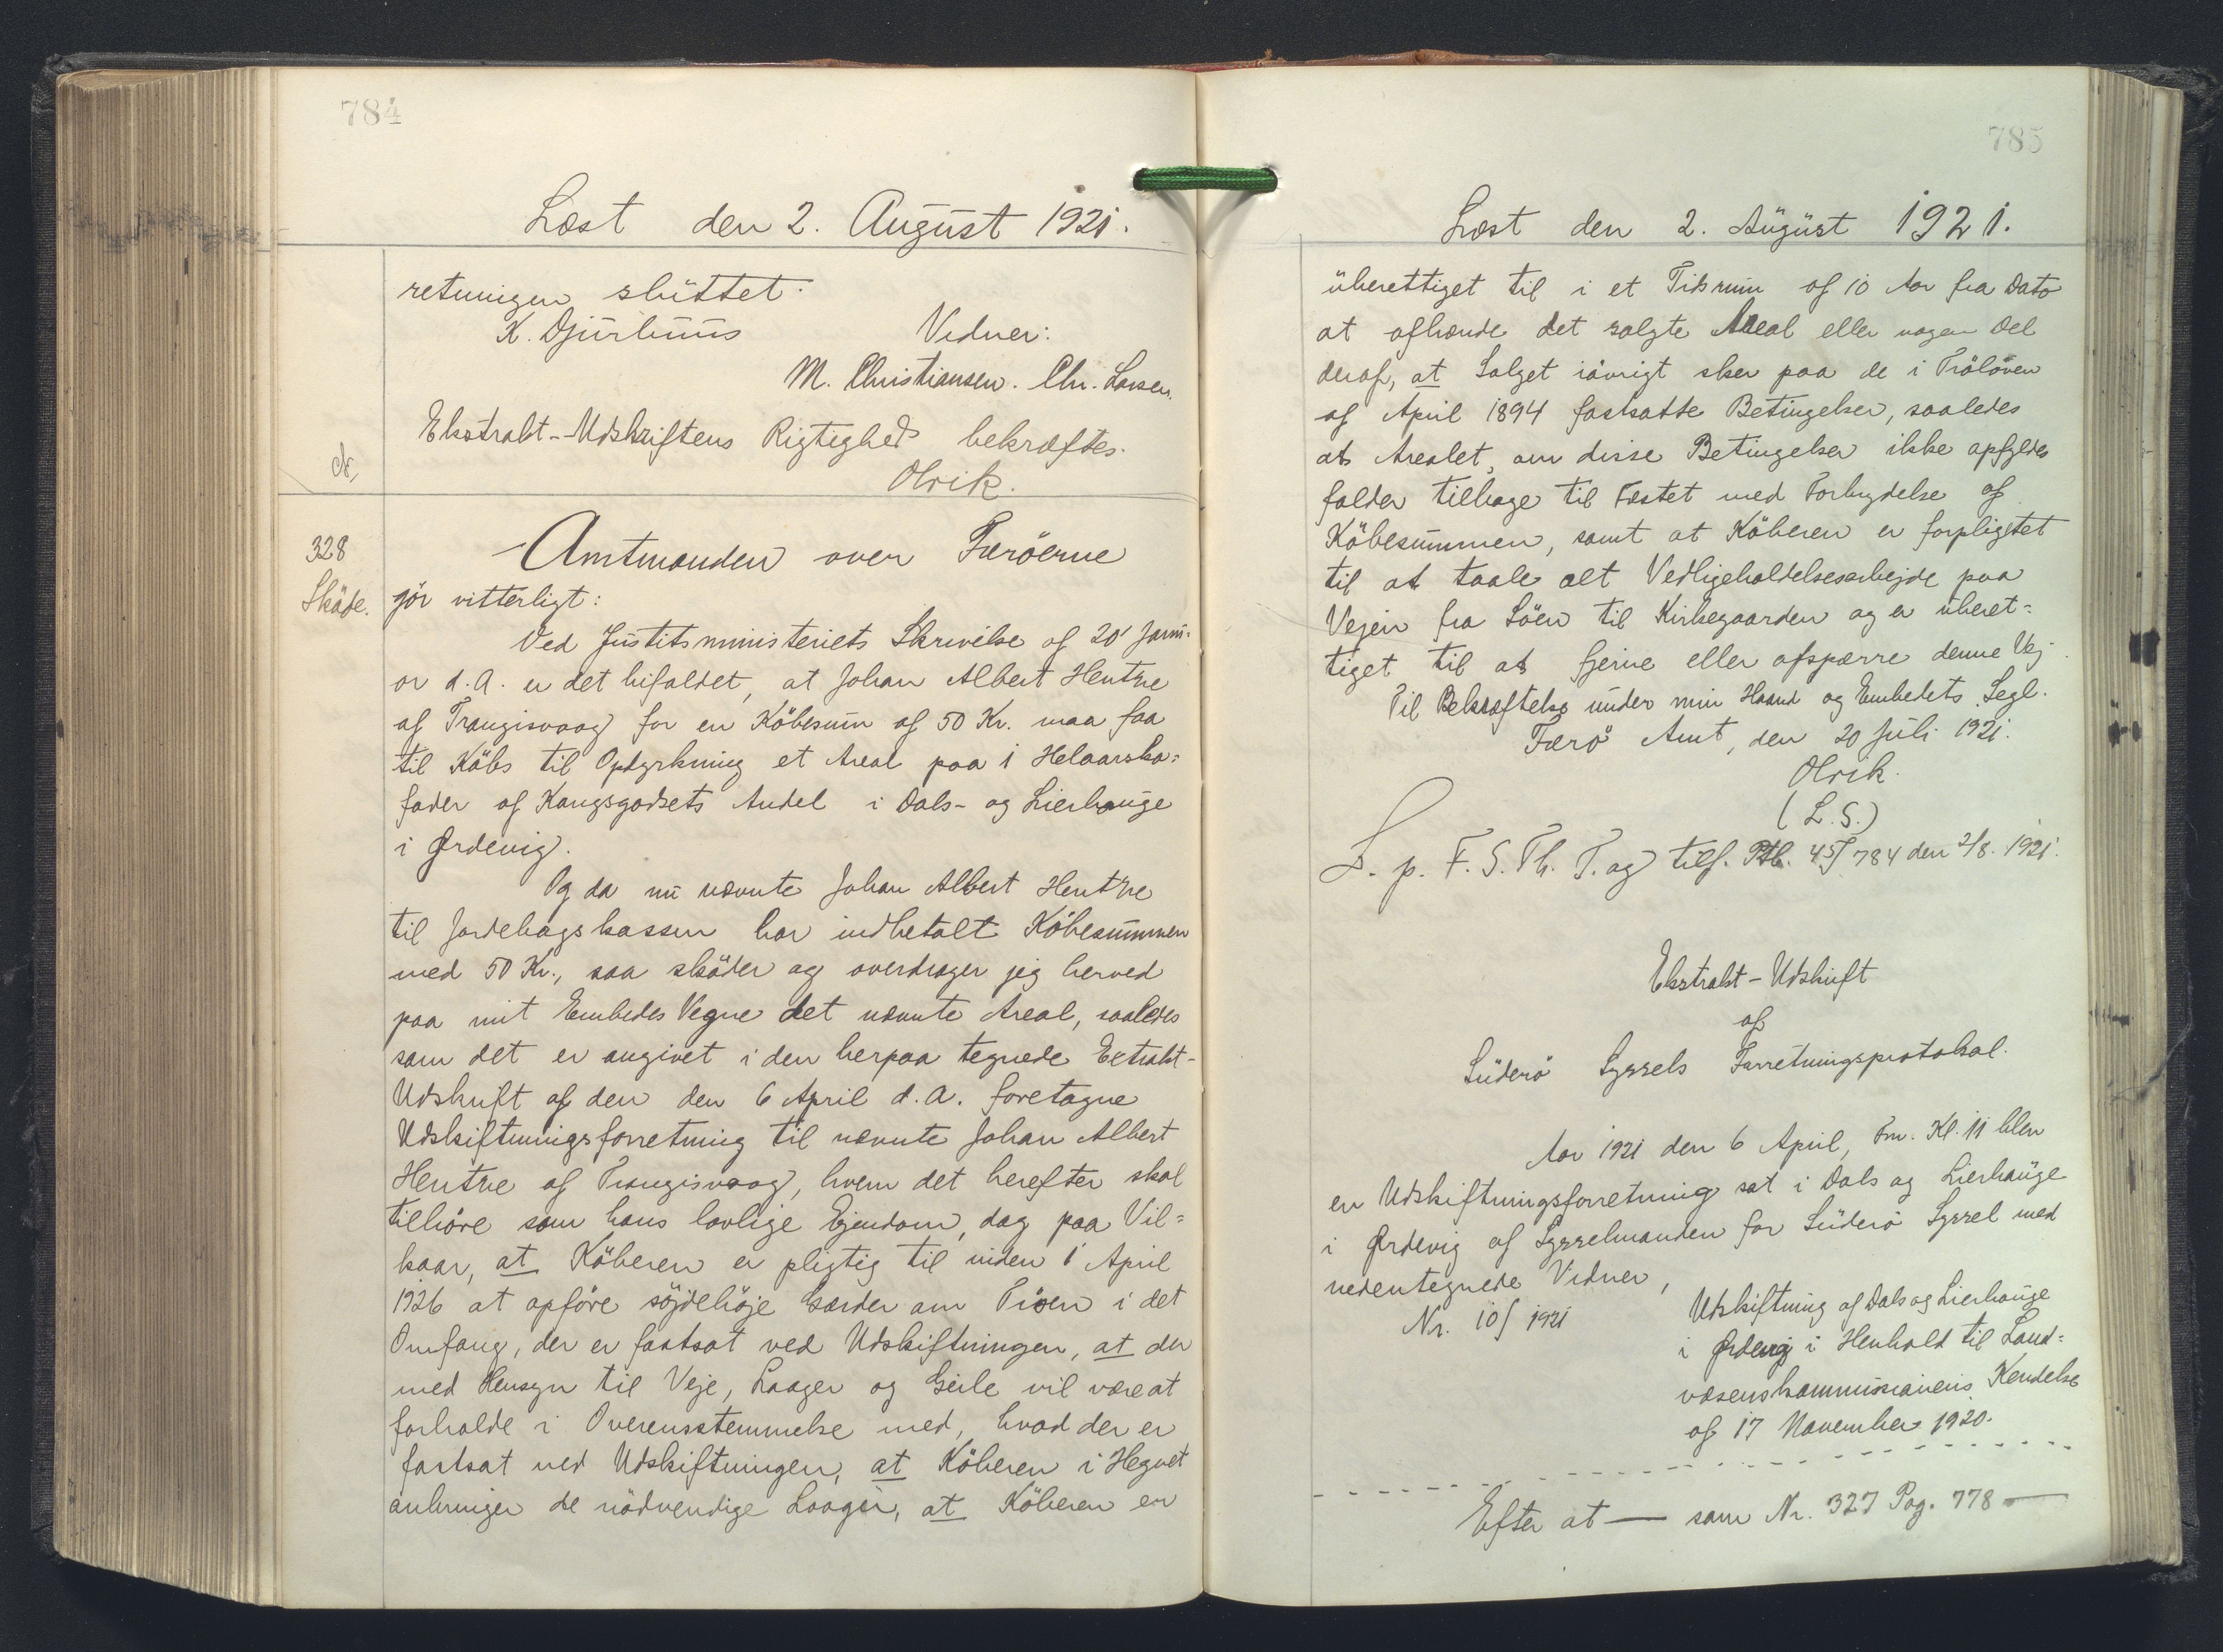 784
Læst den 2. August 1921.
retningen sluttet.
K. Djurhuus Vidner:
M. Christiansen. Chr. Larsen.
Ekstrakt-Udskriftens Rigtighed bekræftes.
Olrik.
328
Sköde.
Amtmanden over Færöerne
gör vitterligt:
Ved Justitsministeriets Skrivelse af 20' Janu=
ar d.A. er det bifaldet, at Johan Albert Hentze
af Trangisvaag for en Köbesum af 50 Kr. maa faa
til Köbs til Opdyrkning et Areal paa 1 Helaarsko=
foder af Kongsgodsets Andel i Dals- og Lierhauge
i Ørdevig.
Og da nu nævnte Johan Albert Hentze
til Jordebogskassen har indbetalt Köbesummen
med 50 Kr., saa sköder og overdrager jeg herved
paa mit Embedes Vegne det nævnte Areal, saaledes
som det er angivet i den herpaa tegnede Extrakt-
Udskrift af den den 6 April d.A. foretagne
Udskiftningsforretning til nævnte Johan Albert
Hentze af Trangisvaag, hvem det herefter skal
tilhöre som hans lovlige Ejendom, dog paa Vil=
kaar, at Köberen er pligtig til inden 1 April
1926 at opföre söjdehöje Gærder om Tröen i det
Omfang, der er fastsat ved Udskiftningen, at der
med Hensyn til Veje, Laager og Geile vil være at
forholde i Overensstemmelse med, hvad der er
fastsat ved Udskiftningen, at Köberen i Hegnet
anbringer de nödvendige Laager, at Köberen er
785
Læst den 2. August 1921.
uberettiget til i et Tidsrum af 10 Aar fra Dato
at afhænde det solgte Areal eller nogen Del
deraf, at Salget iövrigt sker paa de i Trölöven
af April 1894 fastsatte Betingelser, saaledes
at Arealet, om disse Betingelser ikke opfyldes
falder tilbage til Fæstet med Fortrydelse af
Köbesummen, samt at Köberen er forpligtet
til at taale alt Vedligeholdelsesarbejde paa
Vejen fra Söen til Kirkegaarden og er uberet=
tiget til at fjerne eller afspærre denne Vej.
Til Bekræftelse under min Haand og Embedets Segl.
Færö Amt, den 20 Juli 1921.
Olrik.
(L.S.)
L. p. F. S. Th. T. og tilf. Ptb. 45/784 den 2/8. 1921.
Ekstrakt-Udskrift
af
Suderö Syssels Forretningsprotokol.
Aar 1921 den 6 April, Fm. Kl. 11 blev
en Udskiftningsforretning sat i Dals og Lierhauge
i Ørdevig af Sysselmanden for Suderö Syssel med
nedentegnede Vidner,
Nr. 10/1921
Udskiftning af Dals og Lierhauge
i Ørdevig i Henhold til Land=
væsenskommissionens Kendelse
af 17 November 1920.
Efter at — som Nr. 327 Pag. 778 —